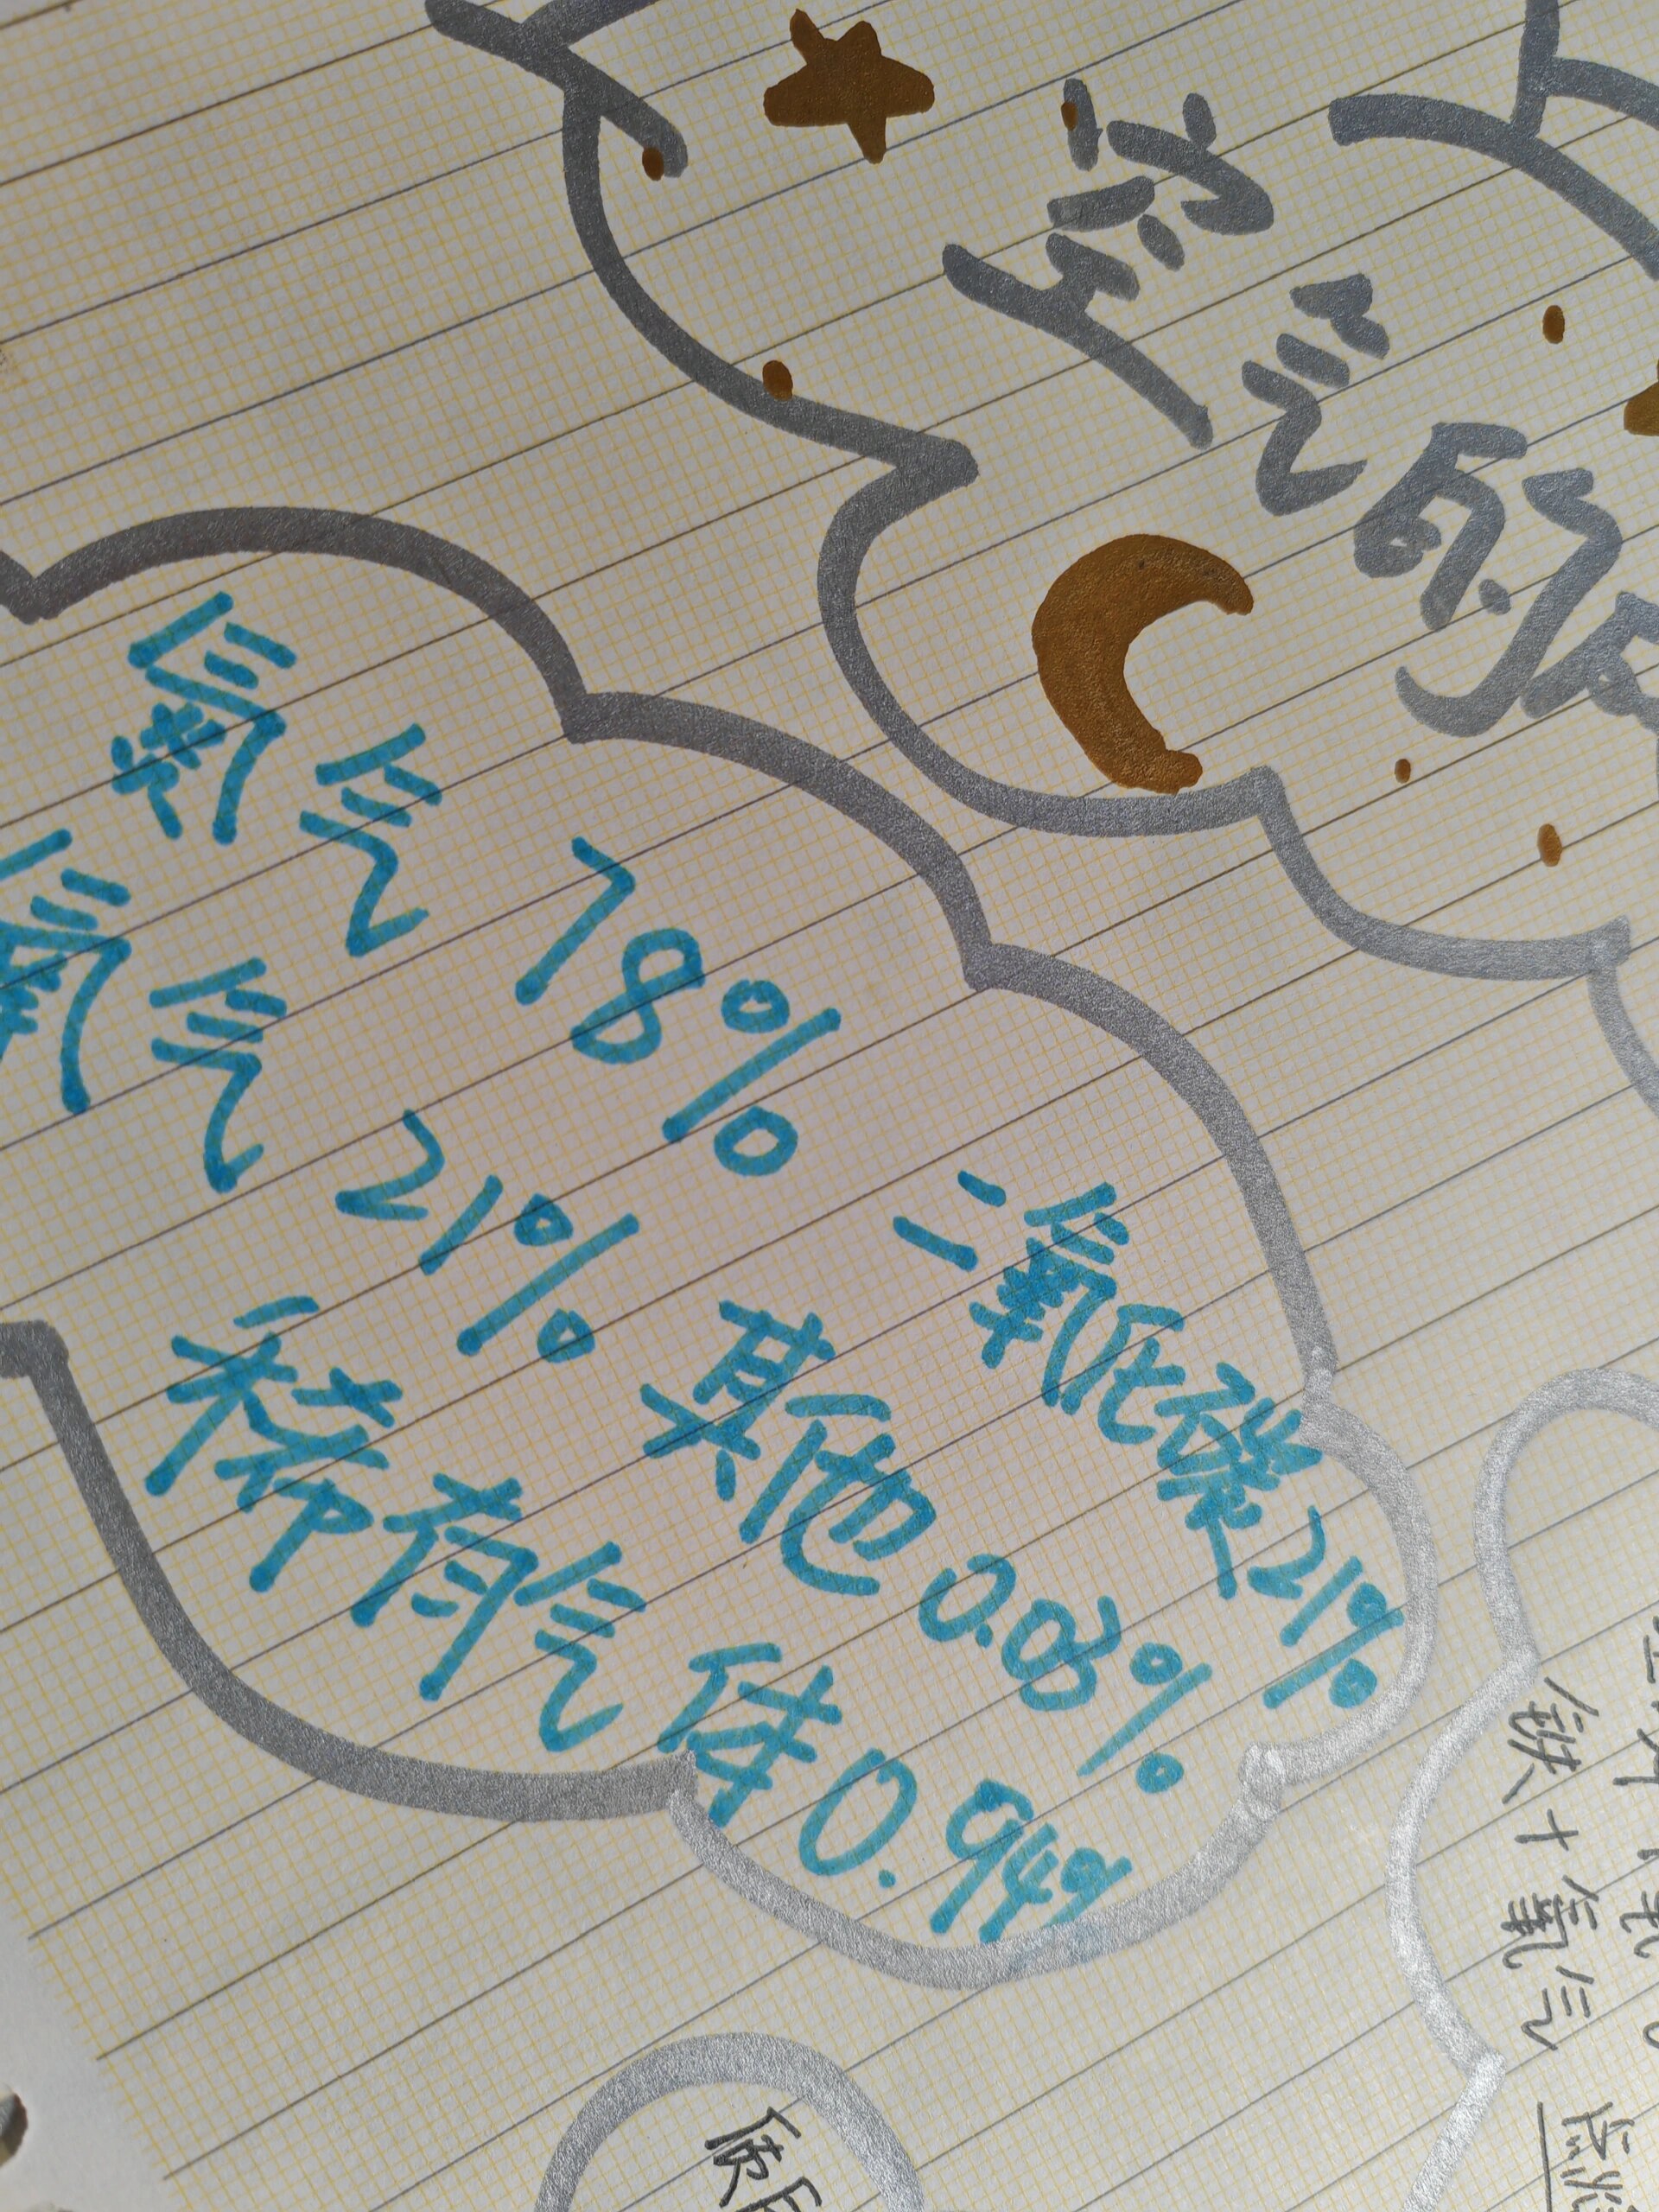 空气的成
氮气 78%
氧气 21%
二氧化碳 21%
其他 0.03%
稀有气体 0.94%
铁+氧气
点燃
质